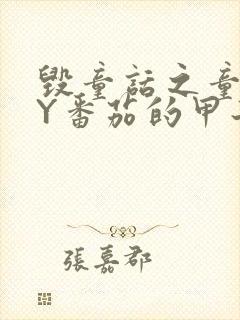 毀童話之童
Y番茄的甲
張嘉郡